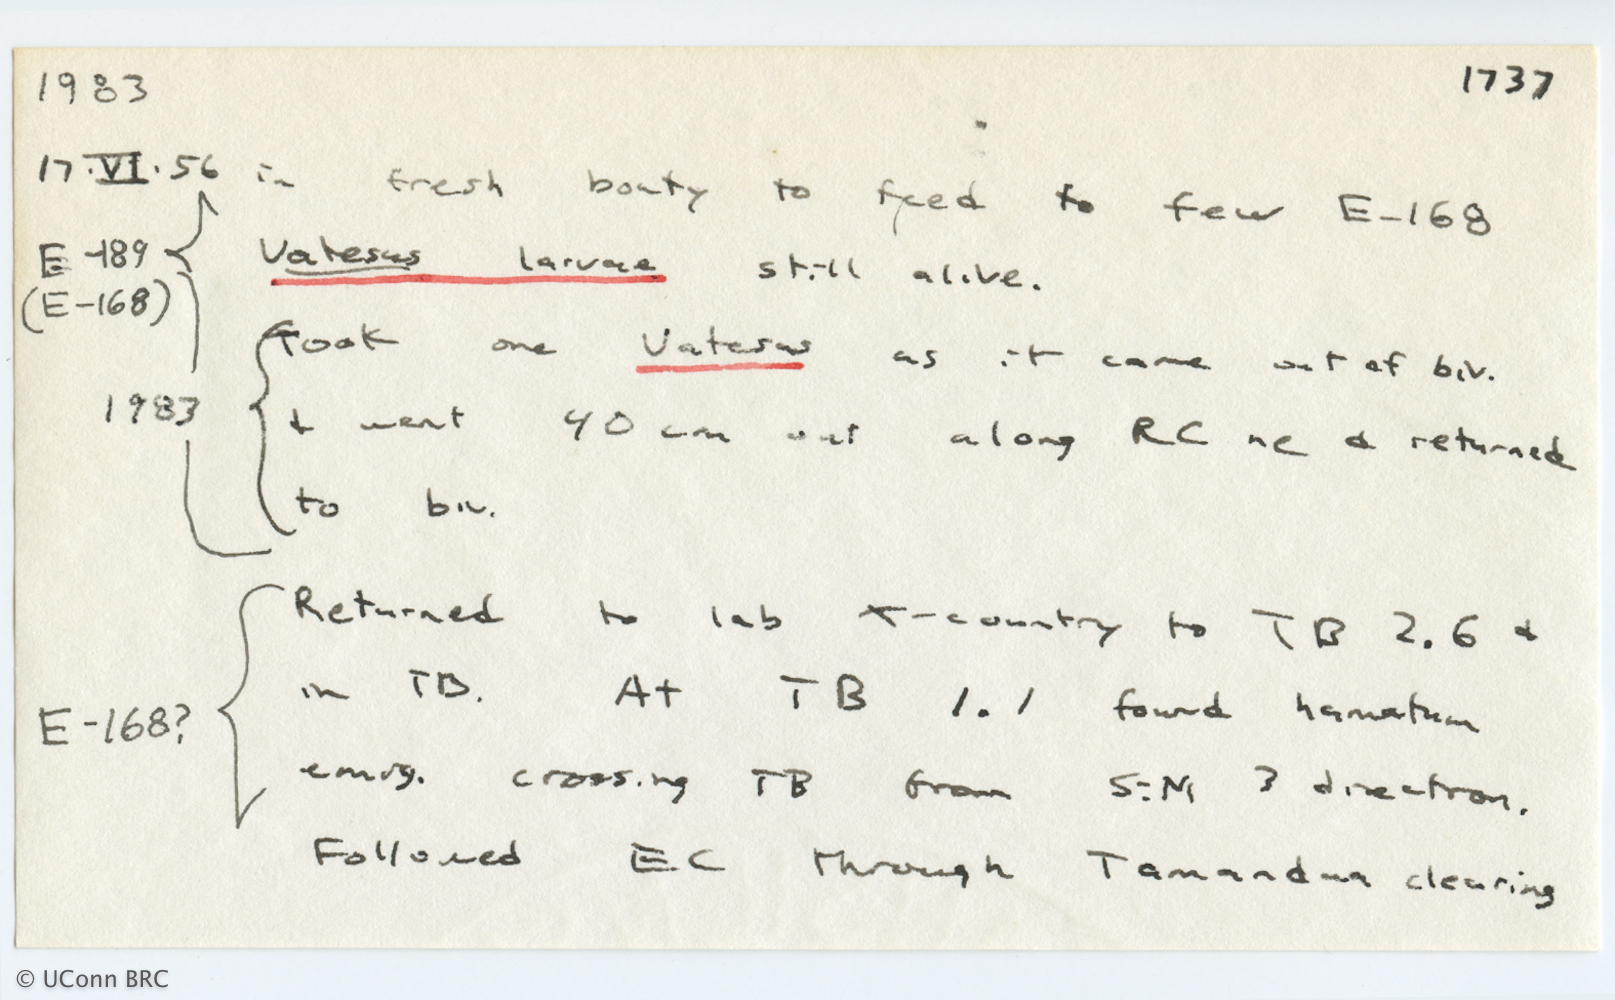 1983 1737
17.VI.56 in fresh booty to feed to few E-168
E-189 Vatesus larvae still alive.
(E-168)
Took one Vatesus as it came out of biv.
1983 & went 40 cm out along RC ne & returned
to biv.
Returned to lab x-country to TB 2.6 &
in TB. At TB 1.1 found hamatum
E-168?
emig. crossing TB from S-N direction.
Followed EC through Tamandua clearing
© UConn BRC